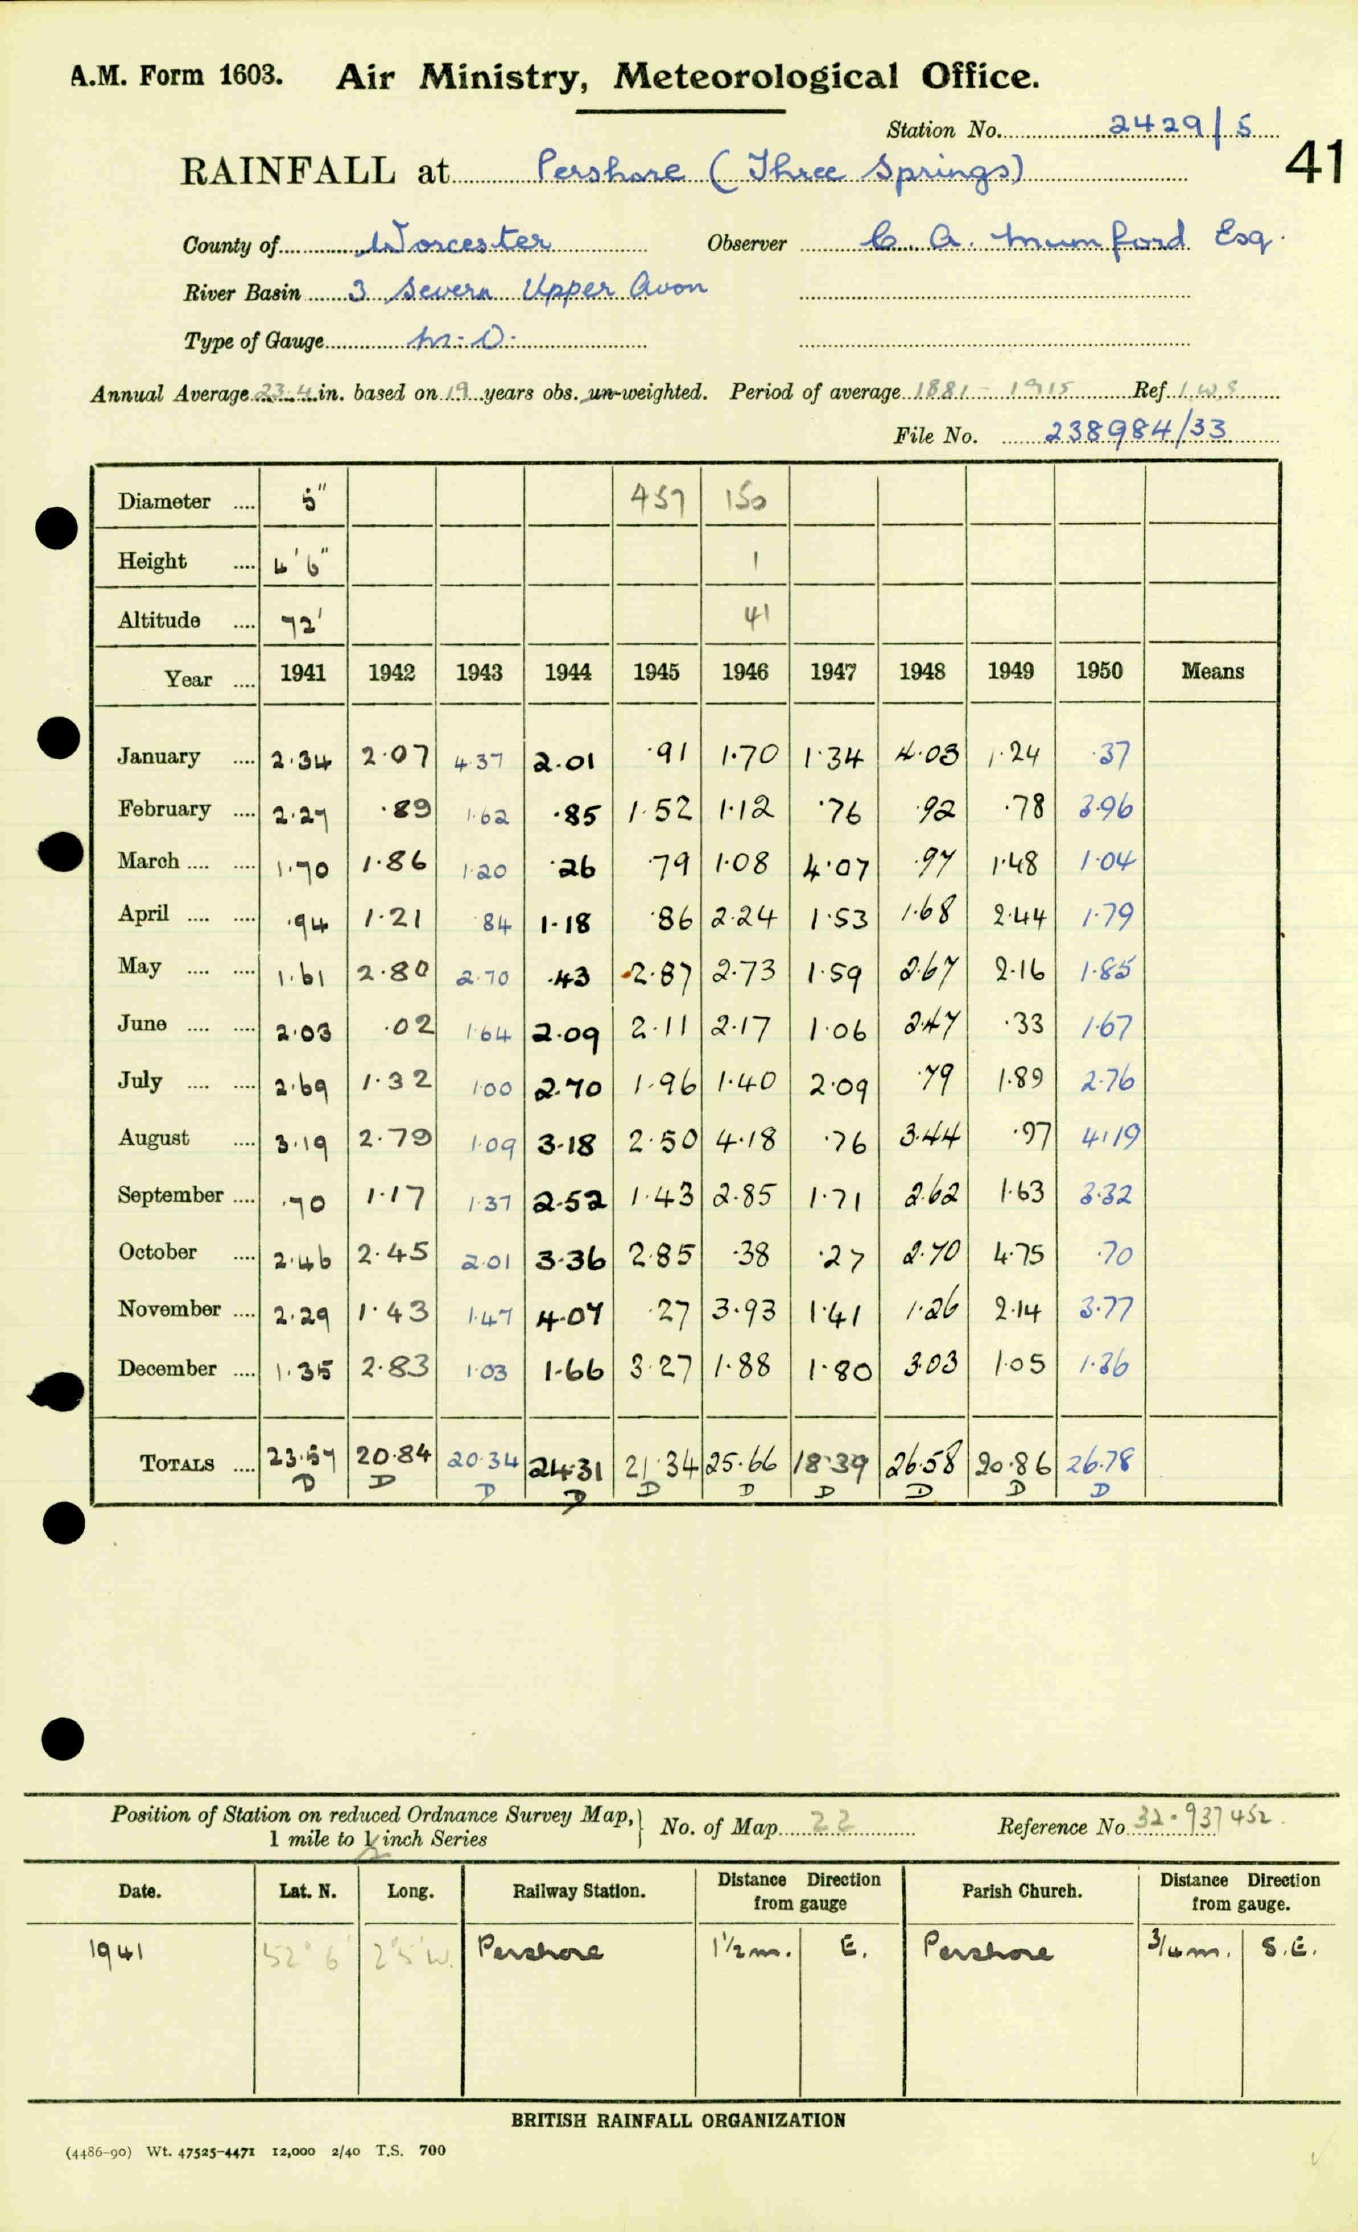 A.M. Form 1603. Air Ministry, Meteorological Office.
Station No. 2429/5
41
RAINFALL at Pershore (Three Springs)
County of Worcester Observer C. A. Mumford Esq.
River Basin 3 Severn Upper Avon
Type of Gauge M.O.
Annual Average 23.4 in. based on 19 years obs. un-weighted. Period of average 1881 - 1915 Ref I.W.S
File No. 238984/33
Diameter .... 5" 457 150
Height .... 4'6" 1
Altitude .... 72' 41
Year .... 1941 1942 1943 1944 1945 1946 1947 1948 1949 1950 Means
January .... 2.34 2.07 4.37 2.01 .91 1.70 1.34 4.03 1.24 .37
February .... 2.27 .89 1.62 .85 1.52 1.12 .76 .92 .78 3.96
March .... .... 1.70 1.86 1.20 .26 .79 1.08 4.07 .97 1.48 1.04
April .... .... .94 1.21 .84 1.18 .86 2.24 1.53 1.68 2.44 1.79
May .... .... 1.61 2.80 2.70 .43 2.87 2.73 1.59 2.67 2.16 1.85
June .... .... 2.03 .02 1.64 2.09 2.11 2.17 1.06 2.47 .33 1.67
July .... .... 2.69 1.32 1.00 2.70 1.96 1.40 2.09 .79 1.89 2.76
August .... 3.19 2.79 1.09 3.18 2.50 4.18 .76 3.44 .97 4.19
September .... .70 1.17 1.37 2.52 1.43 2.85 1.71 2.62 1.63 3.32
October .... 2.46 2.45 2.01 3.36 2.85 .38 .27 2.70 4.75 .70
November .... 2.29 1.43 1.47 4.07 .27 3.93 1.41 1.26 2.14 3.77
December .... 1.35 2.83 1.03 1.66 3.27 1.88 1.80 3.03 1.05 1.36
TOTALS .... 23.57 20.84 20.34 24.31 21.34 25.66 18.39 26.58 20.86 26.78
D D D D D D D D D D
Position of Station on reduced Ordnance Survey Map, No. of Map 22 Reference No 32-937452
1 mile to ½ inch Series
Date. Lat. N. Long. Railway Station. Distance from gauge Direction Parish Church. Distance from gauge. Direction
1941 52° 6' 2° 5' W. Pershore 1½ m. E. Pershore ¾ m. S.E.
BRITISH RAINFALL ORGANIZATION
(4486-90) Wt. 47525-4471 12,000 2/40 T.S. 700